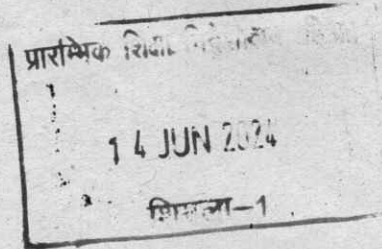 प्रारम्भिक शिक्षा
14 JUN 2024
शिमला-1